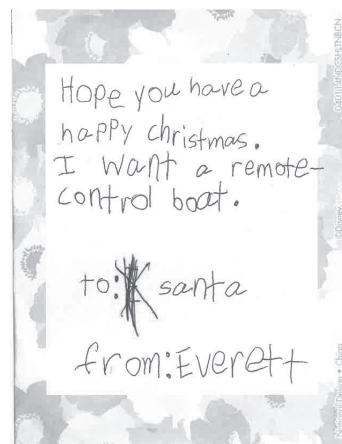 Hope you have a
happy christmas.
I want a remote-
control boat.
to: santa
from: Everett
©Disney